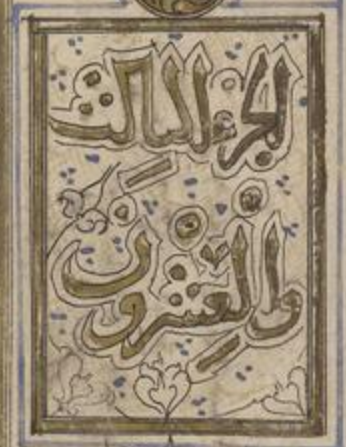 الجزء الثالث
والعشرون